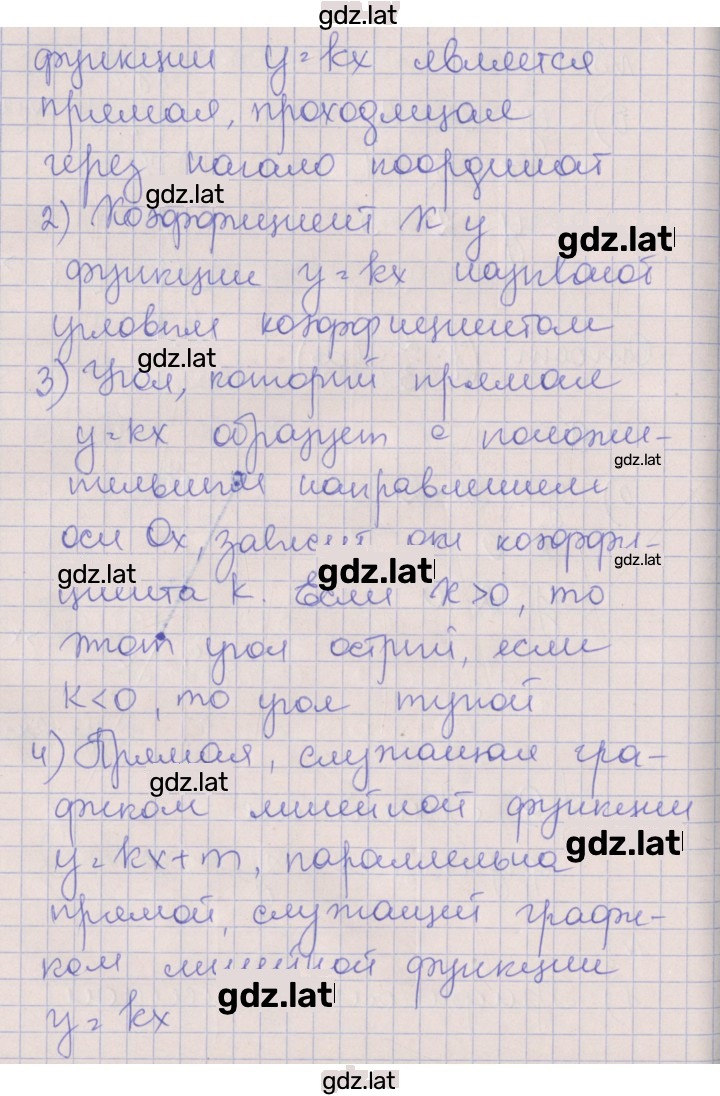 gdz.lat
функции y = kx является
прямая, проходящая
через начало координат
gdz.lat
2) Коэффициент K у
gdz.lat
функции y = kx называют
угловым коэффициентом
gdz.lat
3) Угол, который прямая
y = kx образует с положи-
gdz.lat
тельным направлением
оси Ox, зависит от коэффи-
gdz.lat
gdz.lat
gdz.lat
циента k. Если K > 0, то
этот угол острый, если
K < 0, то угол тупой
4) Прямая, служащая гра-
gdz.lat
фиком линейной функции
gdz.lat
y = kx + m, параллельна
прямой, служащей графи-
ком линейной функции
gdz.lat
y = kx
gdz.lat